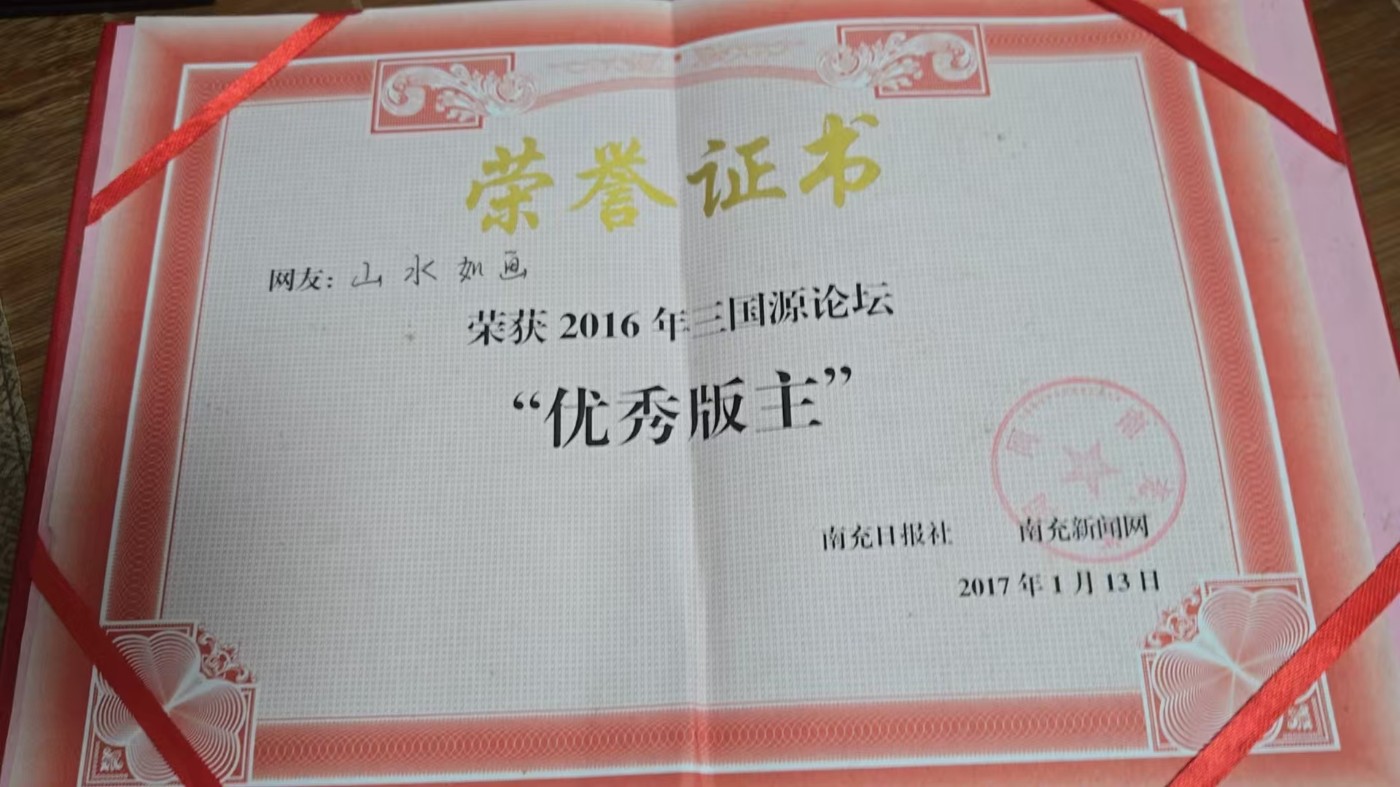 荣誉证书
网友：山水如画
荣获 2016 年三国源论坛
“优秀版主”
南充日报社 南充新闻网
2017 年 1 月 13 日